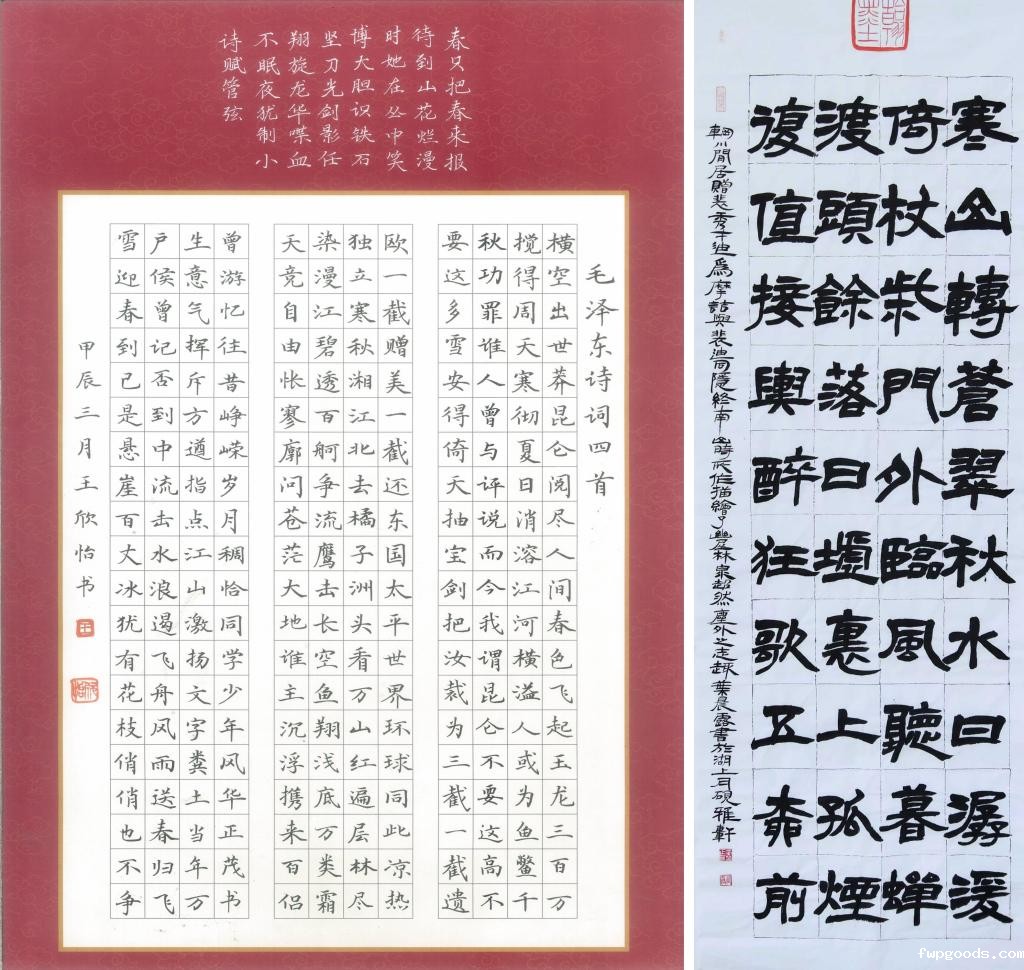 毛泽东诗词四首
横空出世莽昆仑阅尽人间春色飞起玉龙三百万
搅得周天寒彻夏日消溶江河横溢人或为鱼鳖千
秋功罪谁人曾与评说而今我谓昆仑不要这高不
要这多雪安得倚天抽宝剑把汝裁为三截一截遗
欧一截赠美一截还东国太平世界环球同此凉热
独立寒秋湘江北去橘子洲头看万山红遍层林尽
染漫江碧透百舸争流鹰击长空鱼翔浅底万类霜
天竞自由怅寥廓问苍茫大地谁主沉浮携来百侣
曾游忆往昔峥嵘岁月稠恰同学少年风华正茂书
生意气挥斥方遒指点江山激扬文字粪土当年万
户侯曾记否到中流击水浪遏飞舟风雨送春归飞
雪迎春到已是悬崖百丈冰犹有花枝俏俏也不争
春只把春来报
待到山花烂漫
时她在丛中笑
博大胆识铁石
坚刀光剑影任
翔旋龙华喋血
不眠夜犹制小
诗赋管弦
甲辰三月王欣怡书
寒山轉蒼翠秋水日潺湲
倚杖柴門外臨風聽暮蟬
渡頭餘落日墟裏上孤煙
復值接輿醉狂歌五柳前
輞川閒居贈裴秀才迪為摩詰與裴迪同隱終南山時所作描繪了幽居林泉超然塵外之志趣葉晨露書於湖上耳硯雅軒
fwpgoods.com